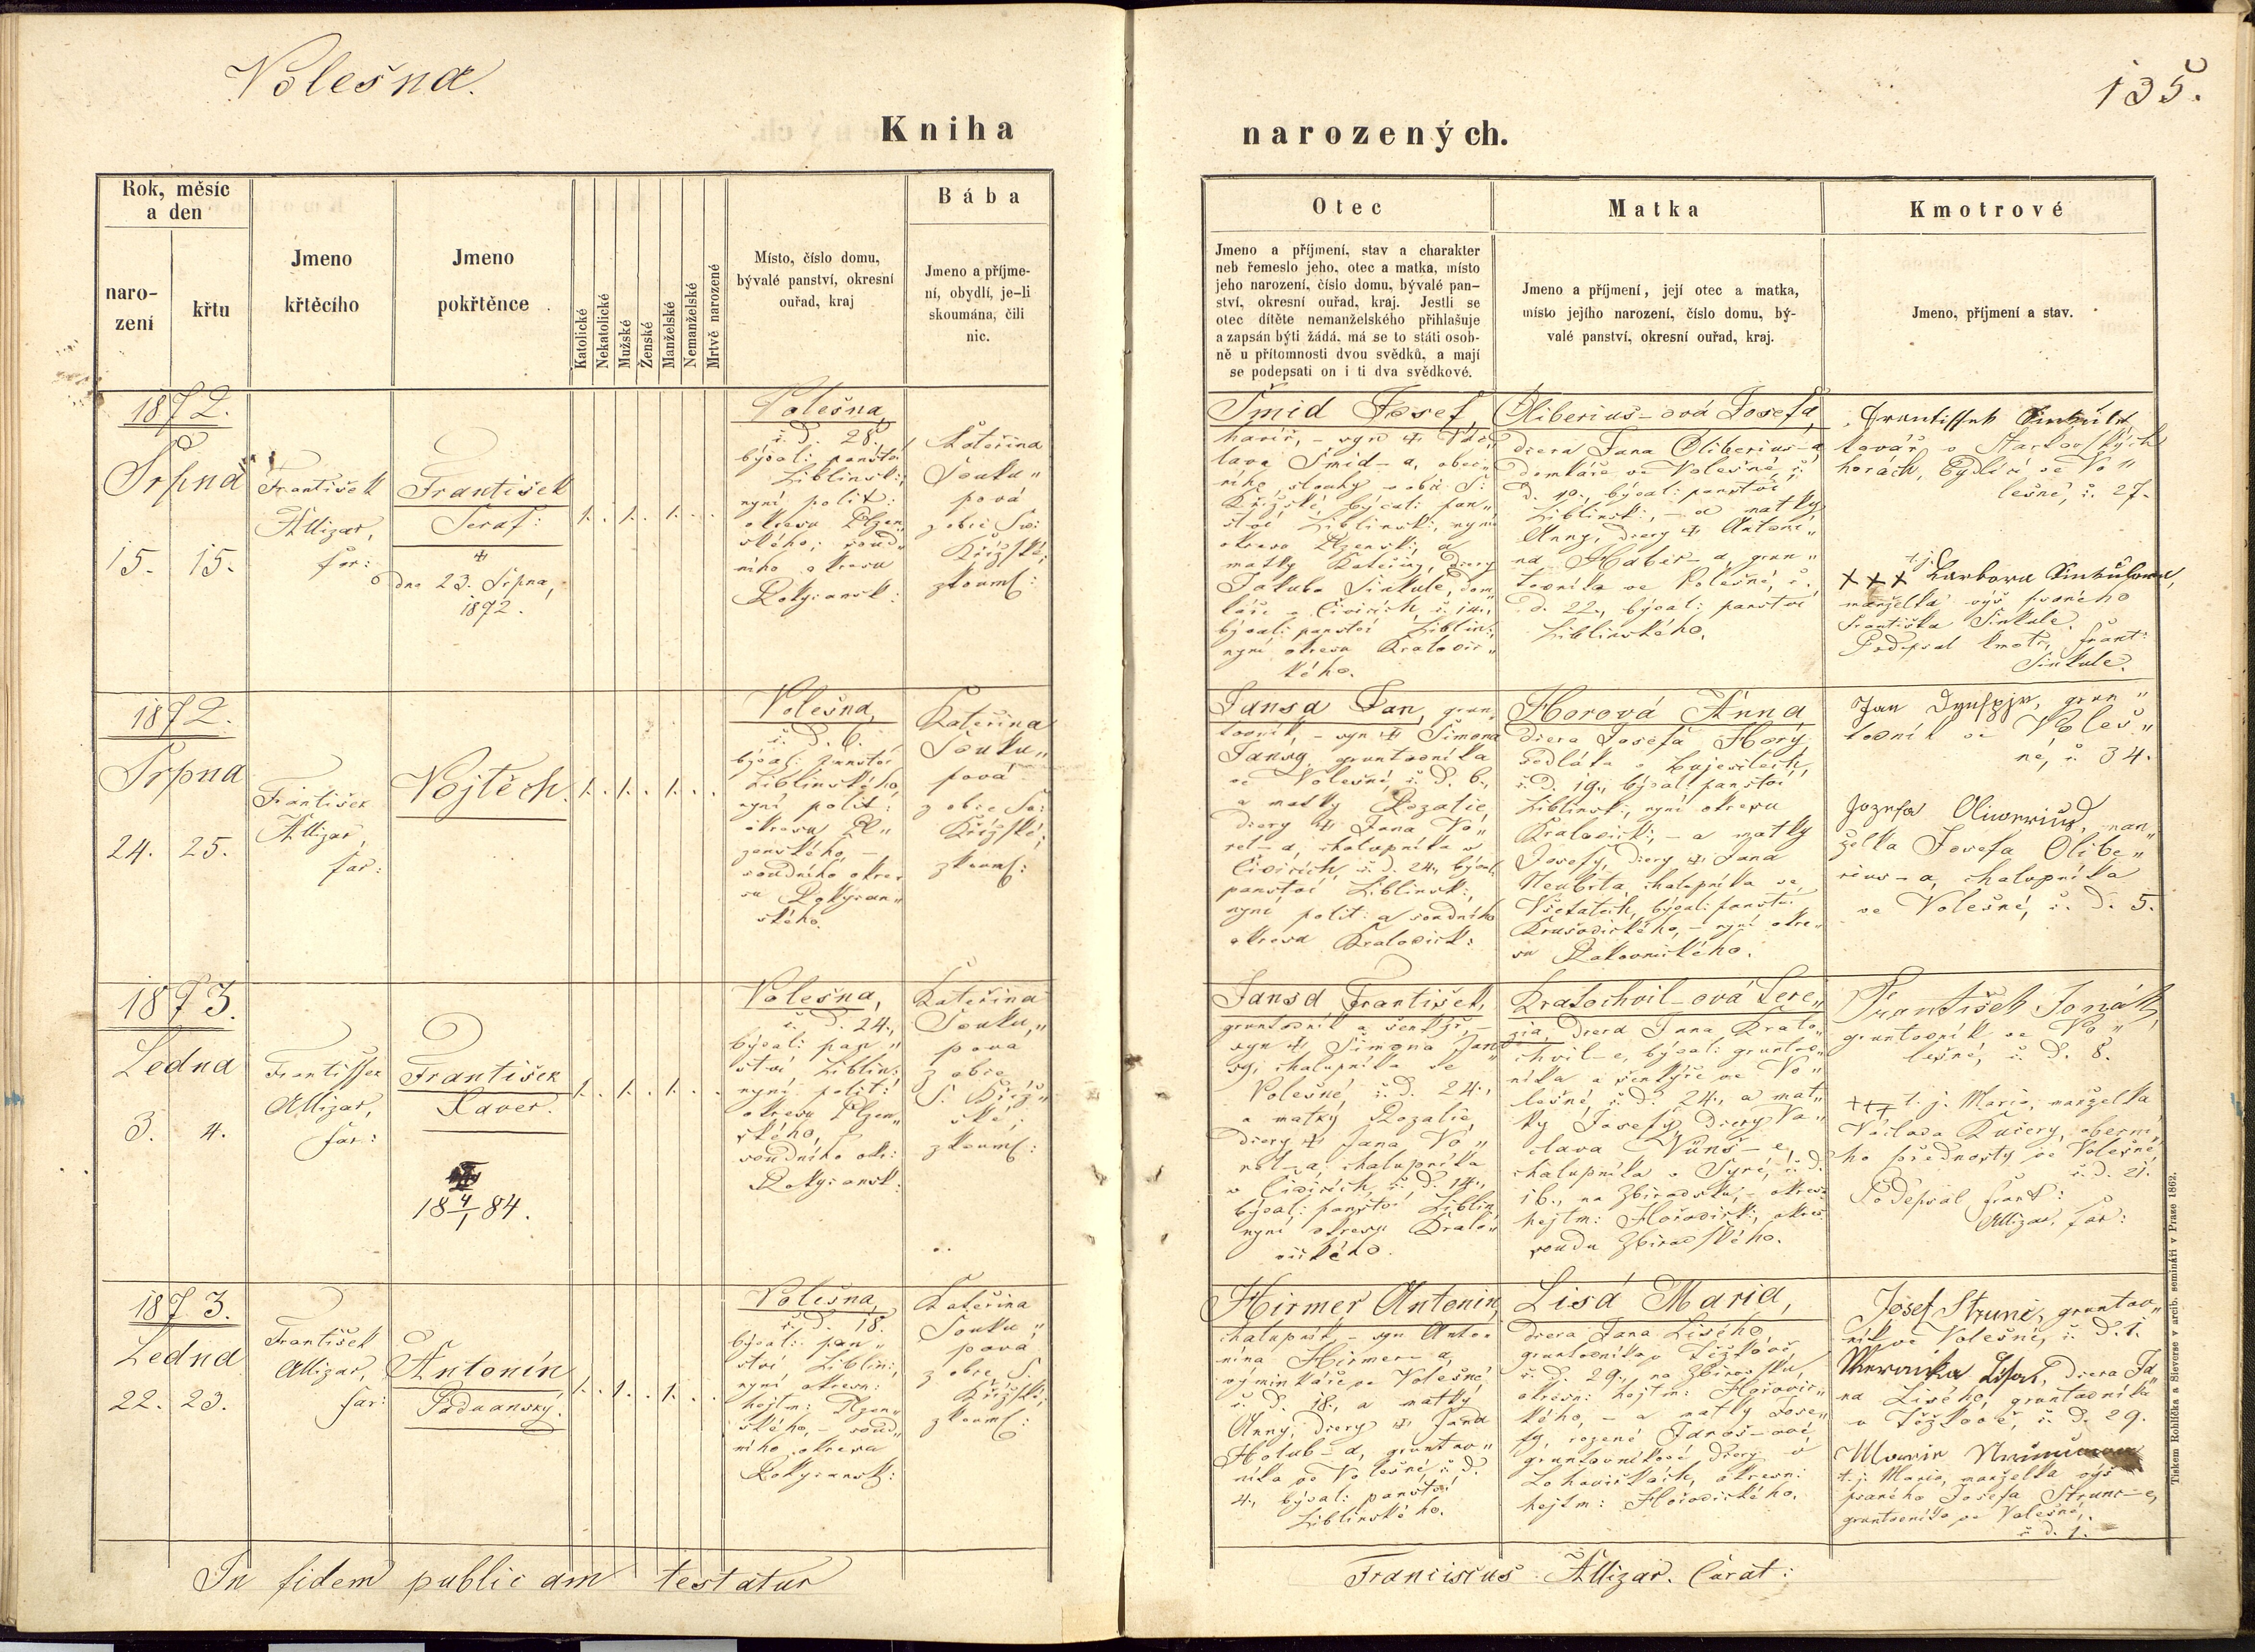 Volešna.
135.
Kniha
narozených.
Rok, měsíc
a den
naro-
zení
křtu
Jmeno
křtěcího
Jmeno
pokřtěnce
Katolické
Nekatolické
Mužské
Ženské
Manželské
Nemanželské
Mrtvě narozené
Místo, číslo domu,
bývalé panství, okresní
ouřad, kraj
Bába
Jmeno a příjme-
ní, obydlí, je-li
skoumána, čili
nic.
Otec
Jmeno a příjmení, stav a charakter
neb řemeslo jeho, otec a matka, místo
jeho narození, číslo domu, bývalé pan-
ství, okresní ouřad, kraj. Jestli se
otec dítěte nemanželského přihlašuje
a zapsán býti žádá, má se to státi osob-
ně u přítomnosti dvou svědků, a mají
se podepsati on i ti dva svědkové.
Matka
Jmeno a příjmení, její otec a matka,
místo jejího narození, číslo domu, bý-
valé panství, okresní ouřad, kraj.
Kmotrové
Jmeno, příjmení a stav.
1872.
Srpna
15. 15.
František
Allizar,
far:
František
Seraf:
dne 23. Srpna,
1872.
1. . 1. . 1. . .
Volešna,
č. d. 28.
býval: panství
Liblinsk:,
nyní polit:
okresu Plzen„
ského; soud„
ního okresu
Rokycansk:
Kateřina
Souku„
pová
z obce Sv:
Křížské;
zkoum:
Šmid Josef,
havíř, – syn Vác„
lava Šmid-a, obec„
ního slouhy v obci S:
Křížské, býval: pan„
ství Liblinsk:, nyní
okresu Plzensk:, a
matky Kateřiny, dcery
Jakuba Sinkule, dom„
káře v Čivicích, č. 14.,
býval: panství Liblin:,
nyní okresu Kralovic„
kého.
Oliberius-ová Josefa,
dcera Jana Oliberius-a
domkáře ve Volešné, č.
d. 19., býval: panství
Liblinsk:, – a matky
Anny, dcery Antoní„
na Haber-a, grun„
tovníka ve Volešné, č.
d. 22., býval: panství
Liblinského.
Frantissek Sinkule
kovář v
horách, bydlící ve Vo„
lešné, č. 27.
+++ t. j. Barbora
manželka výš psaného
Františka Sinkule.
Podepsal kmotr, Frant:
Sinkule.
1872.
Srpna
24. 25.
František
Allizar,
far:
Vojtěch.
1. . 1. . 1. . .
Volešna,
č. d. 6.,
býval: panství
Liblinského,
nyní polit:
okresu Pl„
zenského, –
soudního okre„
su Rokycan„
ského.
Kateřina
Souku„
pová
z obce Sv:
Křížské;
zkoum:
Jansa Jan, grun„
tovník, – syn Šimona
Jansy, gruntovníka
ve Volešné, č. d. 6.,
a matky Rozalie,
dcery Jana Vo„
ret-a, chalupníka v
Čivicích, č. d. 24., býval:
panství Liblinsk:,
nyní polit: a soudního
okresu Kralovick:
Horová Anna,
dcera Josefa Hory,
sedláka v Bujesilech,
č. d. 19., býval: panství
Liblinsk:, nyní okresu
Kralovick:, – a matky
Josefy, dcery Jana
chalupníka ve
Všetatech, býval: panství
Krušovického, – nyní okre„
su Rakovnického.
Jan grun„
tovník ve Voleš„
né, č. 34.
Jozefa man„
želka Josefa Olibe„
rius-a, chalupníka
ve Volešné, č. d. 5.
1873.
Ledna
3. 4.
Frantissek
Allizar,
far:
František
Xaver.
18 4/1 84.
1. . 1. . 1. . .
Volešna,
č. d. 24.,
býval: pan„
ství Liblin:
nyní polit:
okresu Plzen„
ského,
soudního okr:
Rokycansk:
Kateřina
Souku„
pová
z obce
S. Kříž„
ské;
zkoum:
Jansa František,
gruntovník a šenkýř, –
syn Šimona Jan„
sy, chalupníka ve
Volešné, č. d. 24.,
a matky Rozalie,
dcery Jana Vo„
ret-a, chalupníka
v Čivicích, č. d. 14.,
býval: panství Liblin:
nyní okresu Kralo„
vického.
Kratochvil-ová Tere„
zia, dcera Jana Krato„
chvil-e, býval: gruntov„
níka a šenkýře ve Vo„
lešné, č. d. 24., a mat„
ky Josefy, dcery Vá„
clava
chalupníka v Týrě, č. d.
16., na Zbirovsku, – okres:
hejtm: Hořovick:, okres:
soudu Zbirovského.
František Jonák,
gruntovník ve Vo„
lešné, č. d. 8.
+++ t. j. Marie, manželka
Václava Kučery, obecní„
ho přednosty ve Volešné,
č. d. 21.
Podepsal Frant:
Allizar, far:
1873.
Ledna
22. 23.
František
Allizar,
far:
Antonín
Paduanský.
1. . 1. . 1. . .
Volešna,
č. d. 18.
býval: pan„
ství Liblin:,
nyní okresn:
hejtm: Plzen„
ského, – soud„
ního okresu
Rokycansk:
Kateřina
Souku„
pová
z obce S.
Křížské;
zkoum:
Hirmer Antonin,
chalupník, – syn Anto„
nína Hirmer-a,
výminkáře ve Volešné
č. d. 18., a matky
Anny, dcery Jana
Holub-a, gruntov„
níka ve Volešné, č. d.
4., býval: panství
Liblinského.
Lisá Maria,
dcera Jana Lisého,
gruntovníka v Těškově,
č. d. 29., na Zbirovsku,
okresn: hejtm: Hořovic„
kého, – a matky Jose„
fy, rozené Jaroš-ové,
gruntovníkové dcery v
Lohovičkách, okresn:
hejtm: Hořovického.
Josef Strunc, gruntov„
ník ve Volešné, č. d. 1.
dcera Ja„
na Lisého, gruntovníka
v Těškově, č. d. 29.
t. j. Maria, manželka výš
psaného Josefa Strunc-e,
gruntovníka ve Volešné,
č. d. 1.
In fidem publicam testatur
Franciscus Allizar. Curat:
Tiskem Rohlíčka a Sieverse v arcib. semináři v Praze 1862.